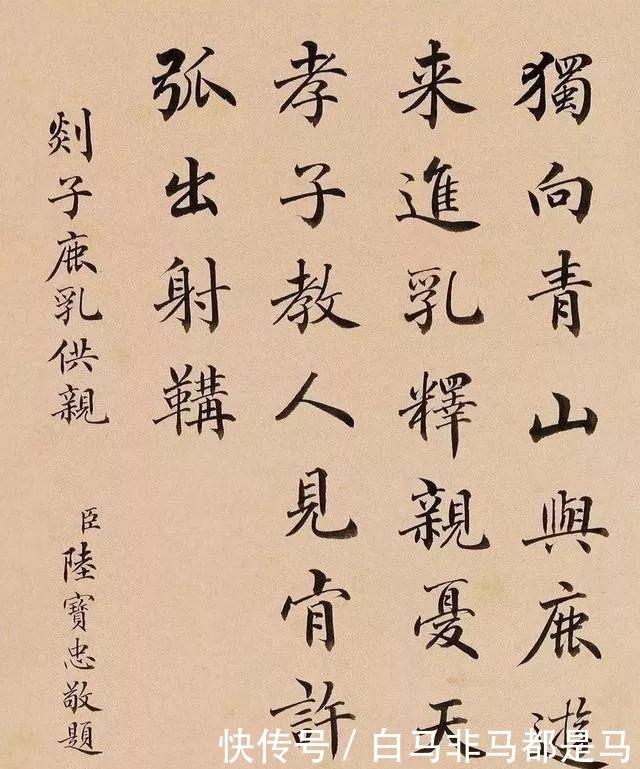 獨向青山與鹿遊
来進乳釋親憂天
孝子教人見肎許
弧出射鞲
剡子鹿乳供親
臣陸寶忠敬題
快传号 / 白马非马都是马